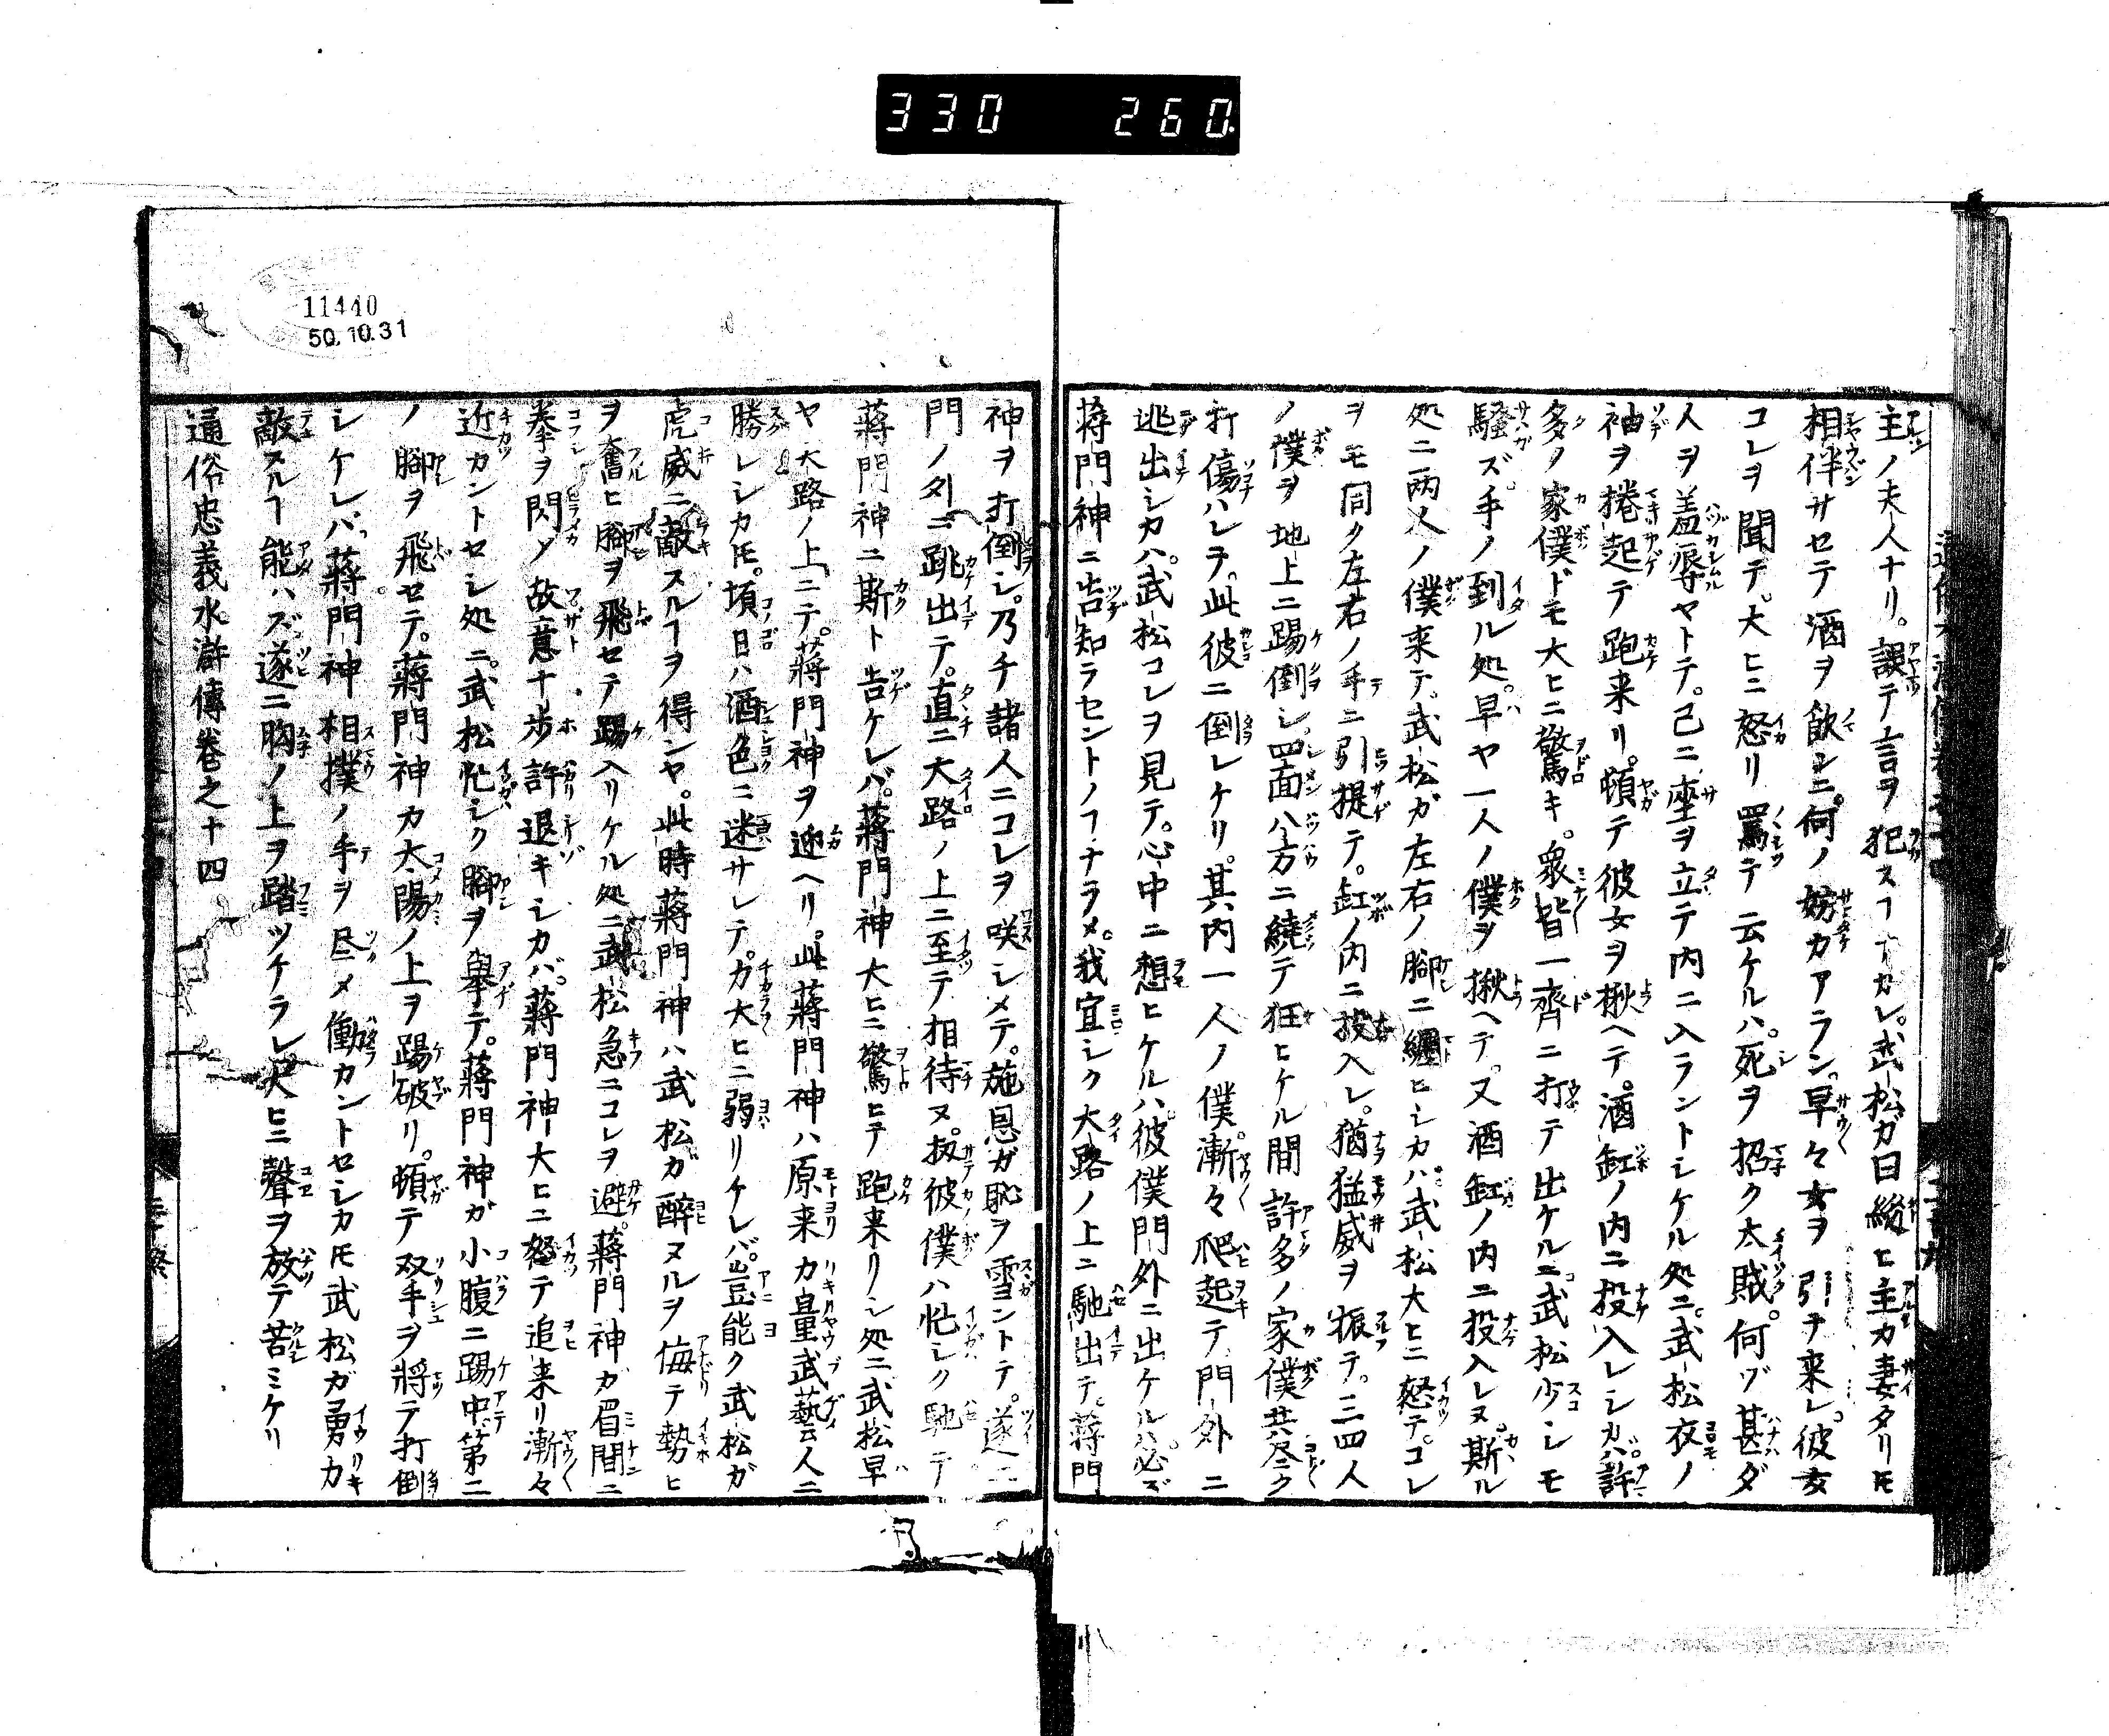 330 260.
11440
50.10.31
主ノ夫人ナリ。誤テ言ヲ犯スヿナカレ。武松カ曰縦ヒ主カ妻タリトモ
相伴サセテ酒ヲ飲シニ何ノ妨カアラン。早々女ヲ引チ来レ。彼女
コレヲ聞テ。大ヒニ怒リ罵テ云ケルハ。死ヲ招ク大賊。何ゾ甚ダ
人ヲ羞辱ヤトテ。己ニ座ヲ立テ内ニ入ラントシケル処ニ。武松衣ノ
袖ヲ捲起テ跑来リ。頓テ彼女ヲ揪ヘテ。酒缸ノ内ニ投入レシカバ。許
多ノ家僕ドモ大ヒニ驚キ。衆皆一齊ニ打テ出ケルニ武松少シモ
騒ズ。手ノ到ル処。早ヤ一人ノ僕ヲ揪ヘテ。又酒缸ノ内ニ投入レヌ。斯ル
処ニ両人ノ僕来テ。武松ガ左右ノ脚ニ纏ヒシカハ。武松大ヒニ怒テ。コレ
ヲモ同ク左右ノ手ニ引提テ。缸ノ内ニ投入レ。猶猛威ヲ振テ。三四人
ノ僕ヲ地上ニ踢倒シ。四面八方ニ繞テ狂ヒケル間許多ノ家僕共尽ク
打傷ハレヲ。此彼ニ倒レケリ。其内一人ノ僕漸々爬起テ。門外ニ
逃出シカハ。武松コレヲ見テ。心中ニ想ヒケルハ。彼僕門外ニ出ケルハ。必ズ
蒋門神ニ告知ラセントノヿナラメ。我宜シク大路ノ上ニ馳出テ。蒋門
神ヲ打倒シ。乃チ諸人ニコレヲ咲シメテ。施恩ガ恥ヲ雪ントテ。遂ニ
門ノ外ニ跳出テ。直ニ大路ノ上ニ至テ相待ヌ。扨彼僕ハ忙シク馳テ
蒋門神ニ斯ト告ケレバ。蒋門神大ヒニ驚ヒテ跑来リシ処ニ武松早
ヤ大路ノ上ニテ。蒋門神ヲ迎ヘリ。此蒋門神ハ原来力量武藝人ニ
勝レシカトモ。頃日ハ酒色ニ迷サレテ。力大ヒニ弱リケレバ。豈能ク武松ガ
虎威ニ敵スルヿヲ得ンヤ。此時蒋門神ハ武松ガ醉ヌルヲ侮テ勢ヒ
ヲ奮ヒ脚ヲ飛セテ踢入リケル処ニ武松急ニコレヲ避。蒋門神ガ眉間ニ
拳ヲ閃メ故意ト歩許退キシカバ。蒋門神大ヒニ怒テ追来リ漸々
近カントセシ処ニ。武松忙シク脚ヲ舉テ。蒋門神ガ小腹ニ踢中第二
ノ脚ヲ飛セテ。蒋門神カ太陽ノ上ヲ踢破リ。頓テ双手ヲ將テ打倒
シケレバ。蒋門神相撲ノ手ヲ尽メ働カントセシカトモ武松ガ勇力
敵スルヿ能ハズ。遂ニ胸ノ上ヲ踏ツケラレ大ヒニ聲ヲ放テ苦ミケリ
通俗忠義水滸傳卷之十四